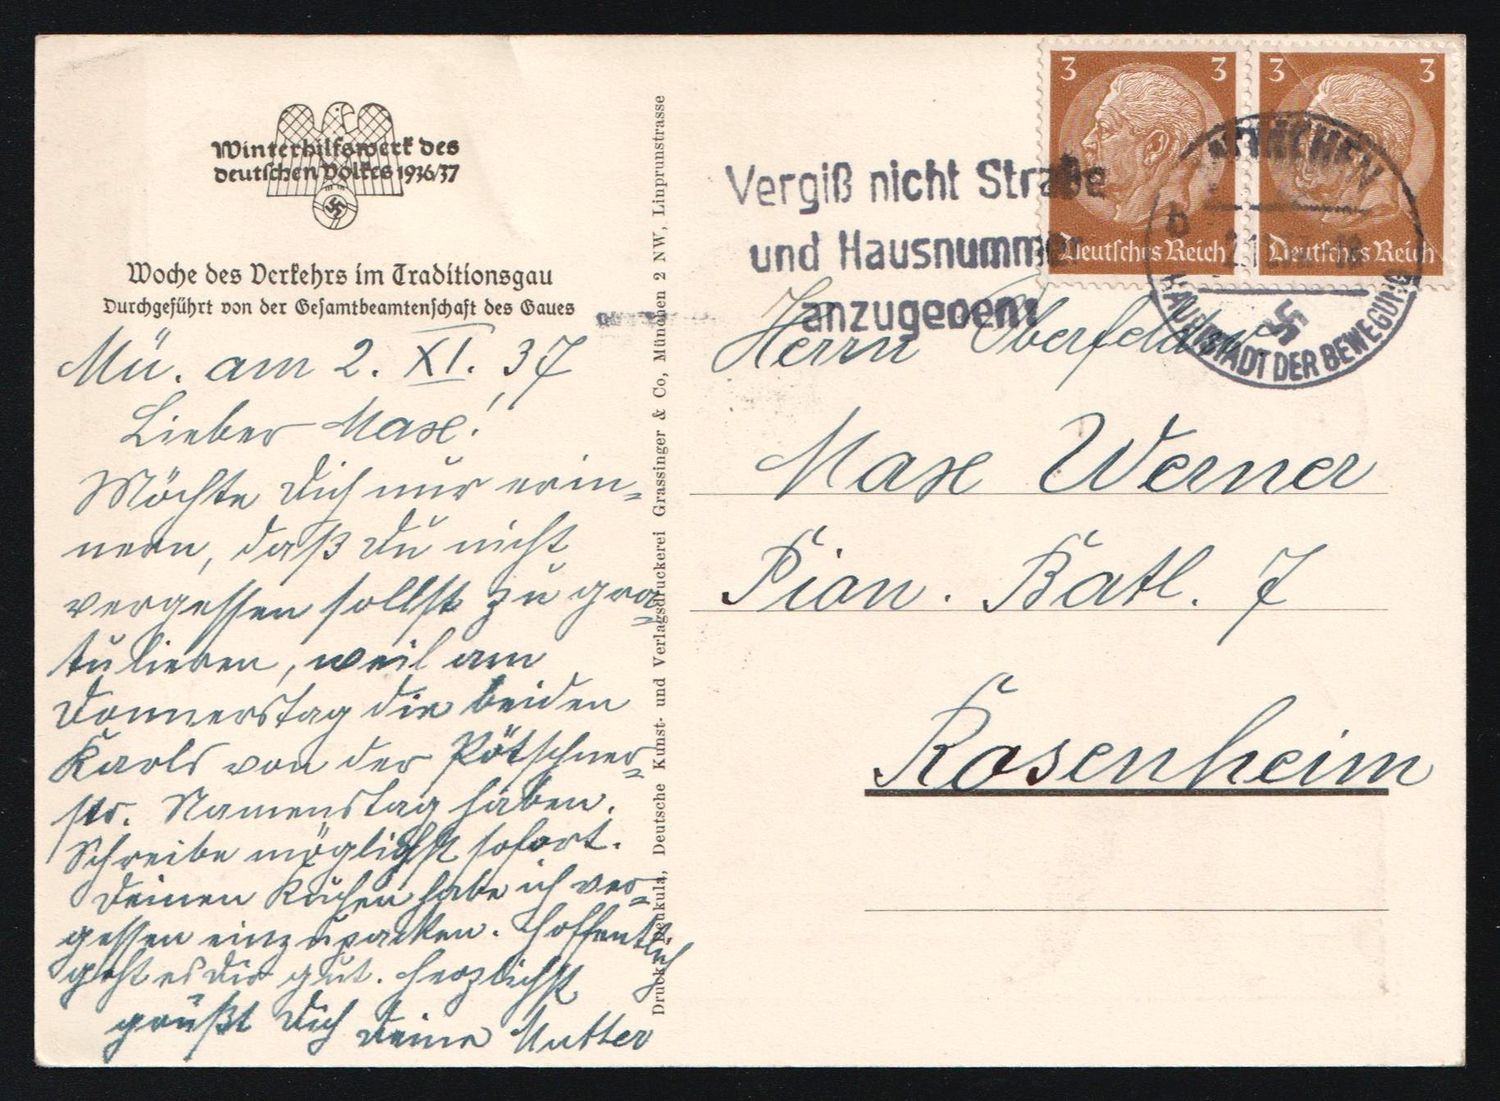 Winterhilfswerk des
deutschen Volkes 1936/37
Woche des Verkehrs im Traditionsgau
Durchgeführt von der Gesamtbeamtenschaft des Gaues
Mü. am 2. XI. 37
Lieber Max!
Möchte Dich nur erin-
nern, daß Du nicht
vergessen sollst zu gra-
tulieren, weil am
Donnerstag die beiden
Karls von der Pötschner-
str. Namenstag haben.
Schreibe möglichst sofort.
Deinen Kuchen habe ich ver-
gessen einzupacken. Hoffentlich
geht es Dir gut. Herzlichst
grüßt Dich Deine Mutter
Druck: Deukula, Deutsche Kunst- und Verlagsdruckerei Grassinger & Co, München 2 NW, Linprunstrasse
3 3
Deutsches Reich
3 3
Deutsches Reich
Vergiß nicht Straße
und Hausnummer
anzugeben!
MÜNCHEN
b
HAUPTSTADT DER BEWEGUNG
Herrn
Max Werner
Pion. Batl. 7
Rosenheim